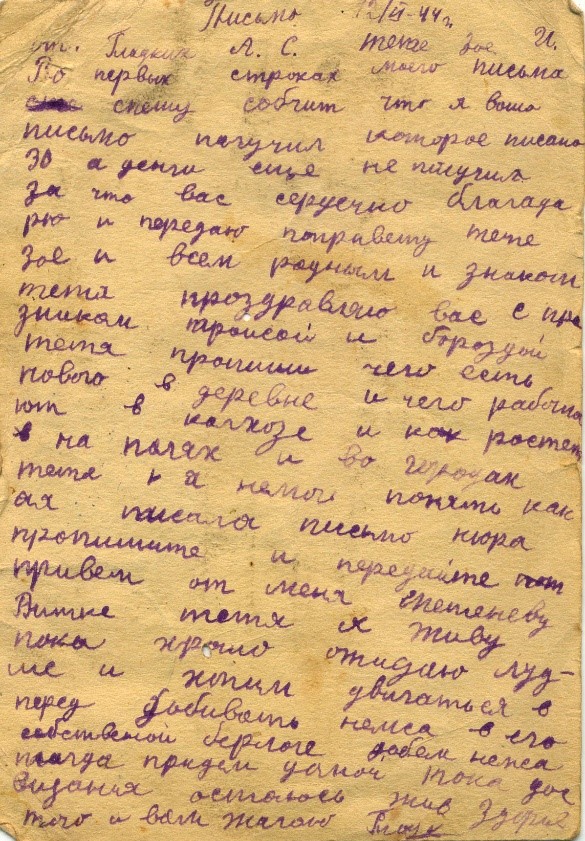 Письмо 12/VI-44 г.
от. Гладких А. С. тете Зое И.
Во первых строках моего письма
спешу собчит что я ваше
письмо палучил которое писано
30 а денги еще не плучил
за что вас серусчно благада
рю и передаю поправету тете
Зое и всем родным и знаком
тетя проздравляю вас с пра
зником троисой и бороздой
тетя пропиши чего есть
нового в деревне и чего работа
ют в калхозе и как ростет
на палях и во городах
тетя я немогу понять как
ая писала письмо нюра
пропишите и передайте
привет от меня
Витке тетя я живу
пока храшо ожидаю луд-
ше и хотим двигаться в
перед добивать немса в его
собственой берлоге добем немса
тагда придем дамой пока дос
видания остаюсь жив здоров
того и вам жалаю Гладк